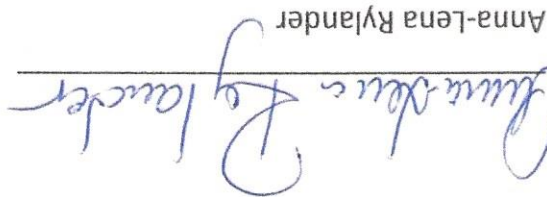 Anna-Lena Rylander
Anna-Lena Rylander